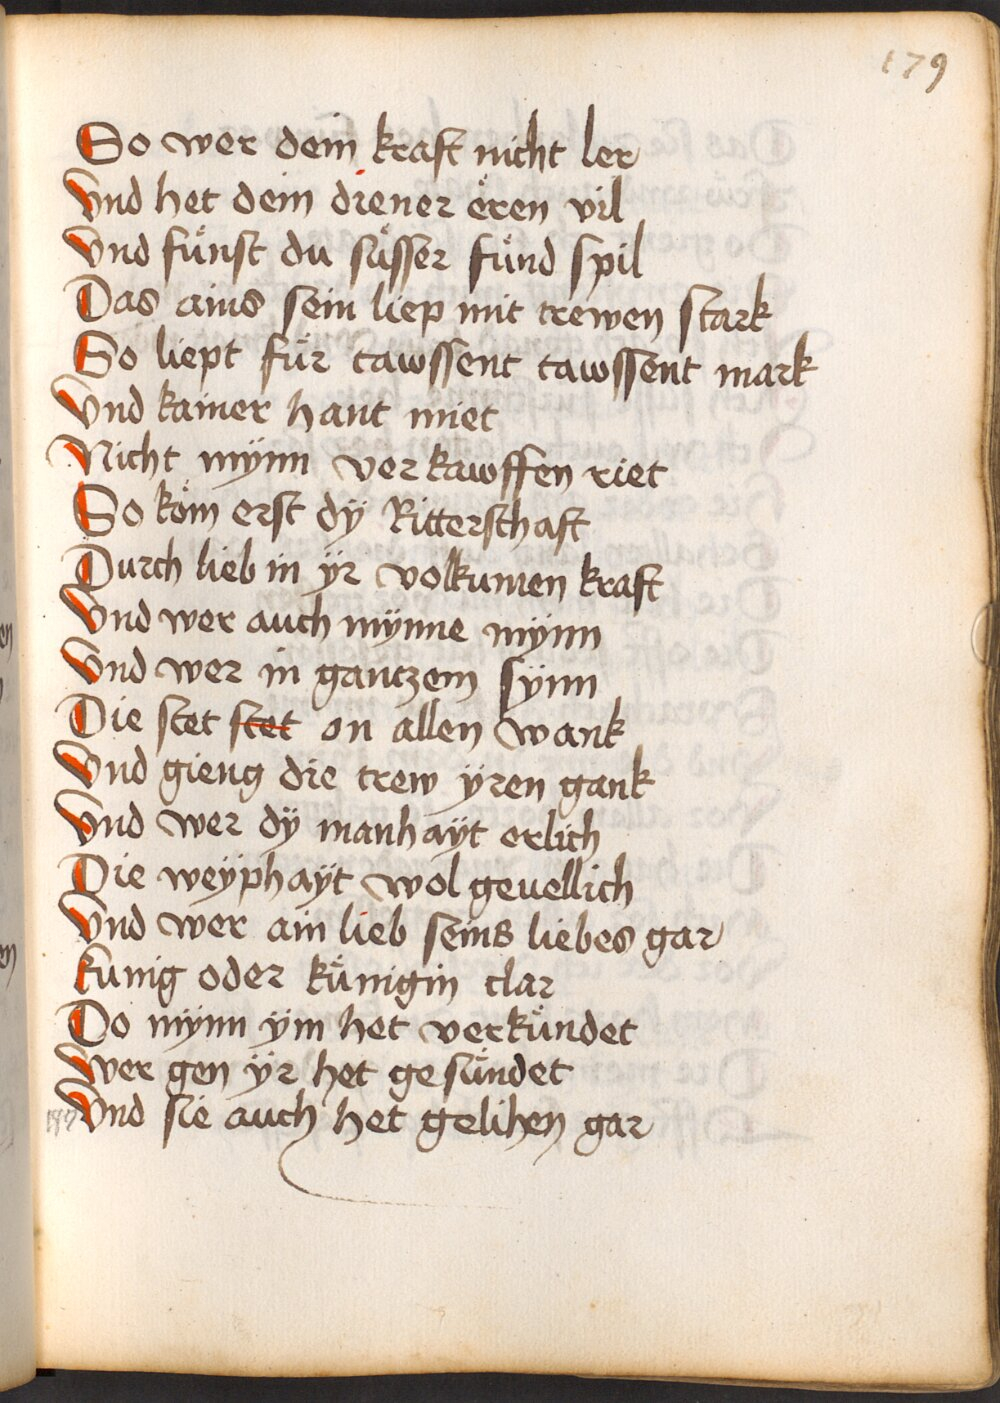 179
So wer dein kraft nicht ler
Vnd het dein diener eͤren vil
Vnd fuͤnst du suͤsser fuͤnd spil
Das ains sein liep mit trewen stark
So liept fuͤr tawssent tawssent mark
Vnd kainer hant miet
Nicht mÿnn verkawffen riet
So koͤm erst dÿ Ritterschaft
Durch lieb in ÿr volkumen kraft
Vnd wer auch mÿnne mÿnn
Vnd wer in gantzem sÿnn
Die stet stet on allen wank
Vnd gieng die trew ÿren gank
Vnd wer dÿ manhaÿt erlich
Die weÿphaÿt wol geuellich
Vnd wer ain lieb seins liebes gar
kunig oder kuͤnigin clar
Do mÿnn ÿm het verkuͤndet
Wer gen ÿr het gesuͤndet
Vnd sie auch het gelihen gar